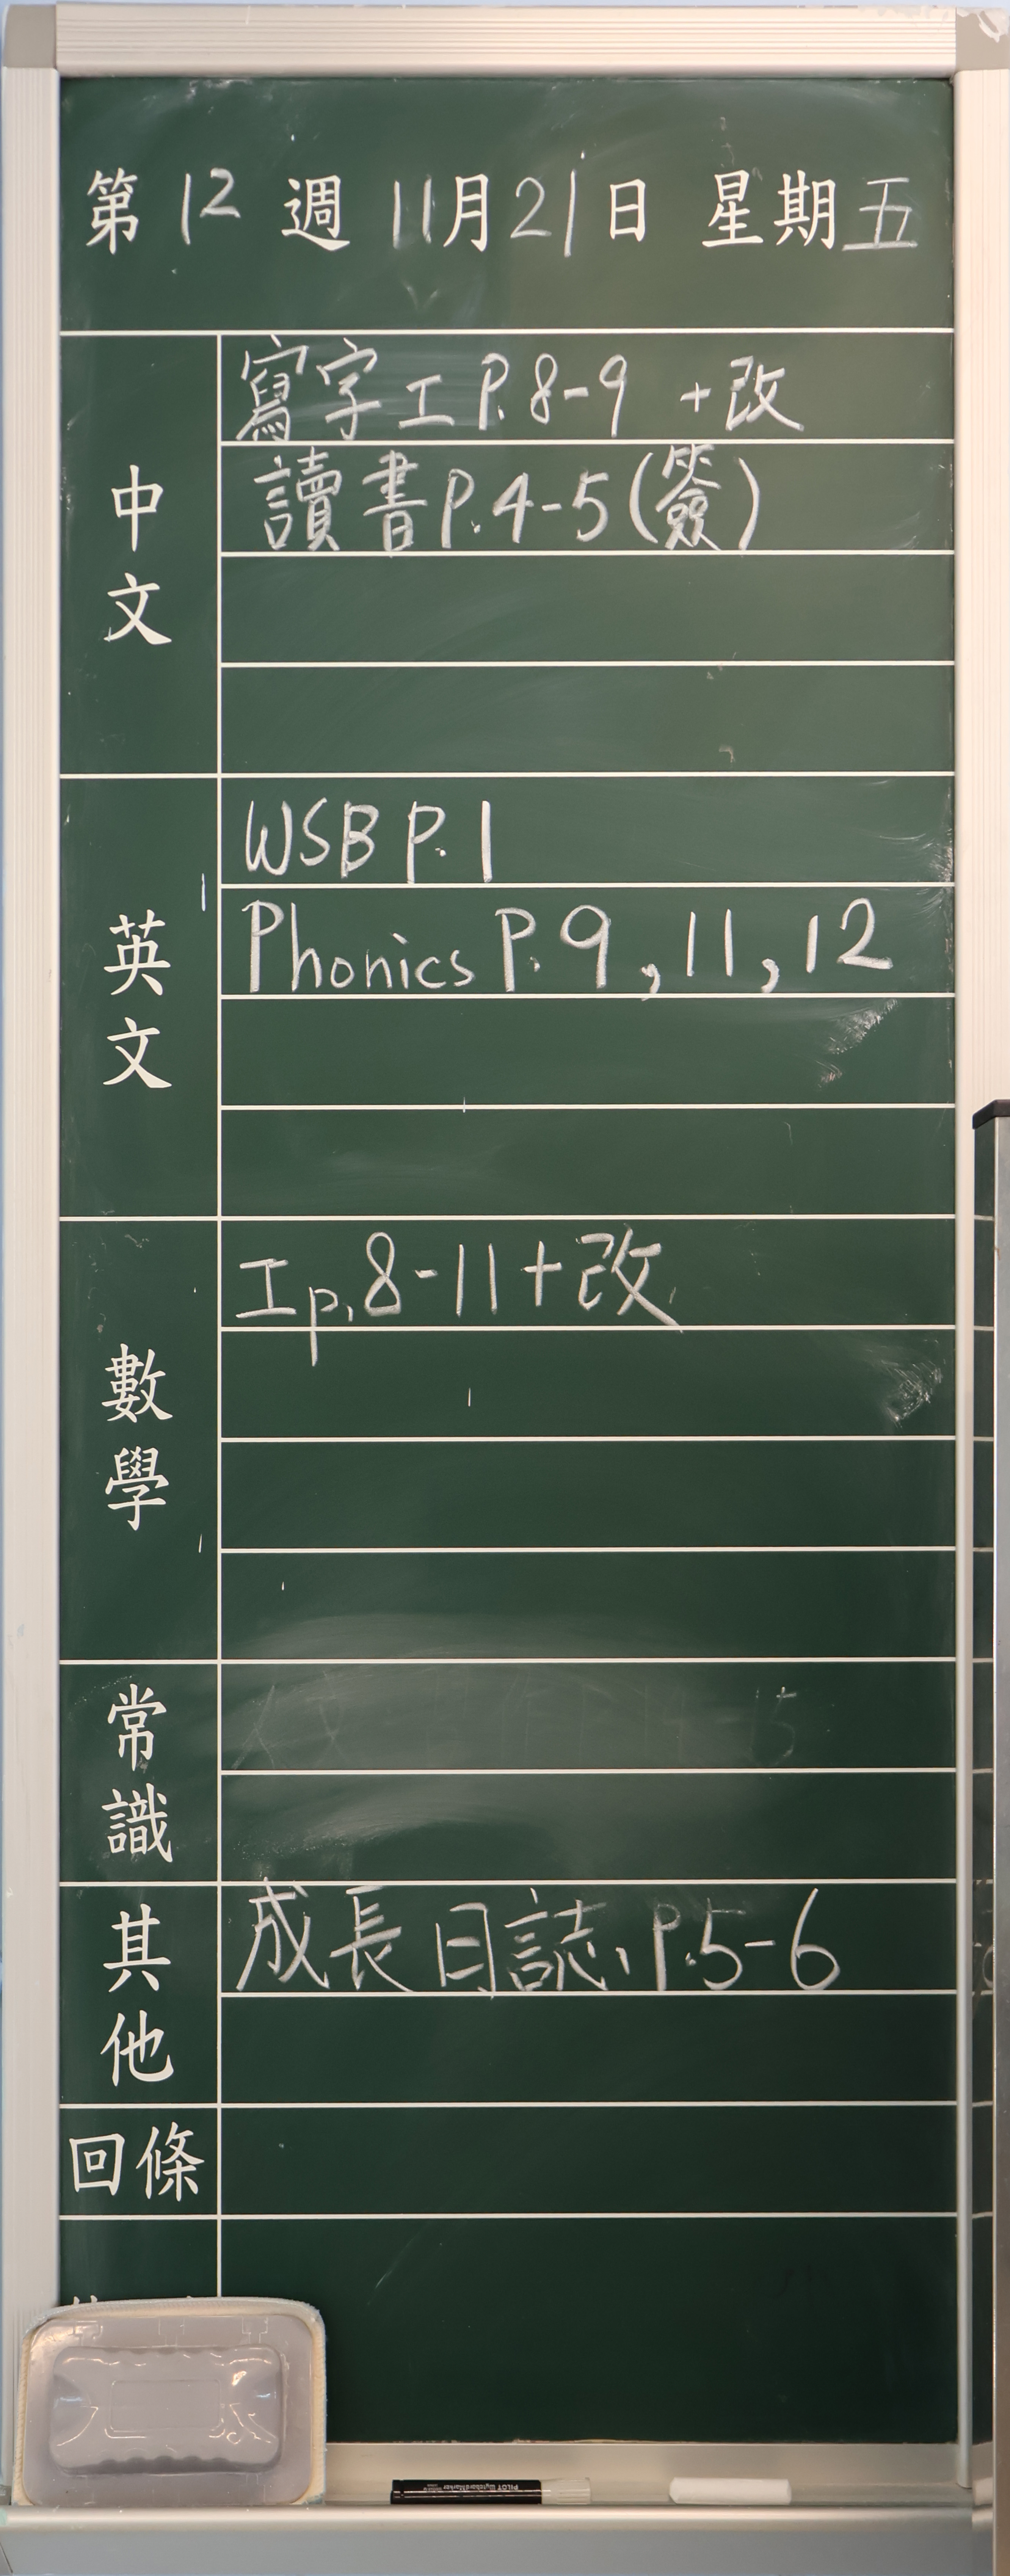 第 12 週 11月21日 星期五
中文
寫字工 P.8-9 +改
讀書 P.4-5(簽)
英文
WSB P.1
Phonics P.9, 11, 12
數學
工p.8-11+改
常識
其他
成長日誌、P.5-6
回條
PILOT WyteboardMarker